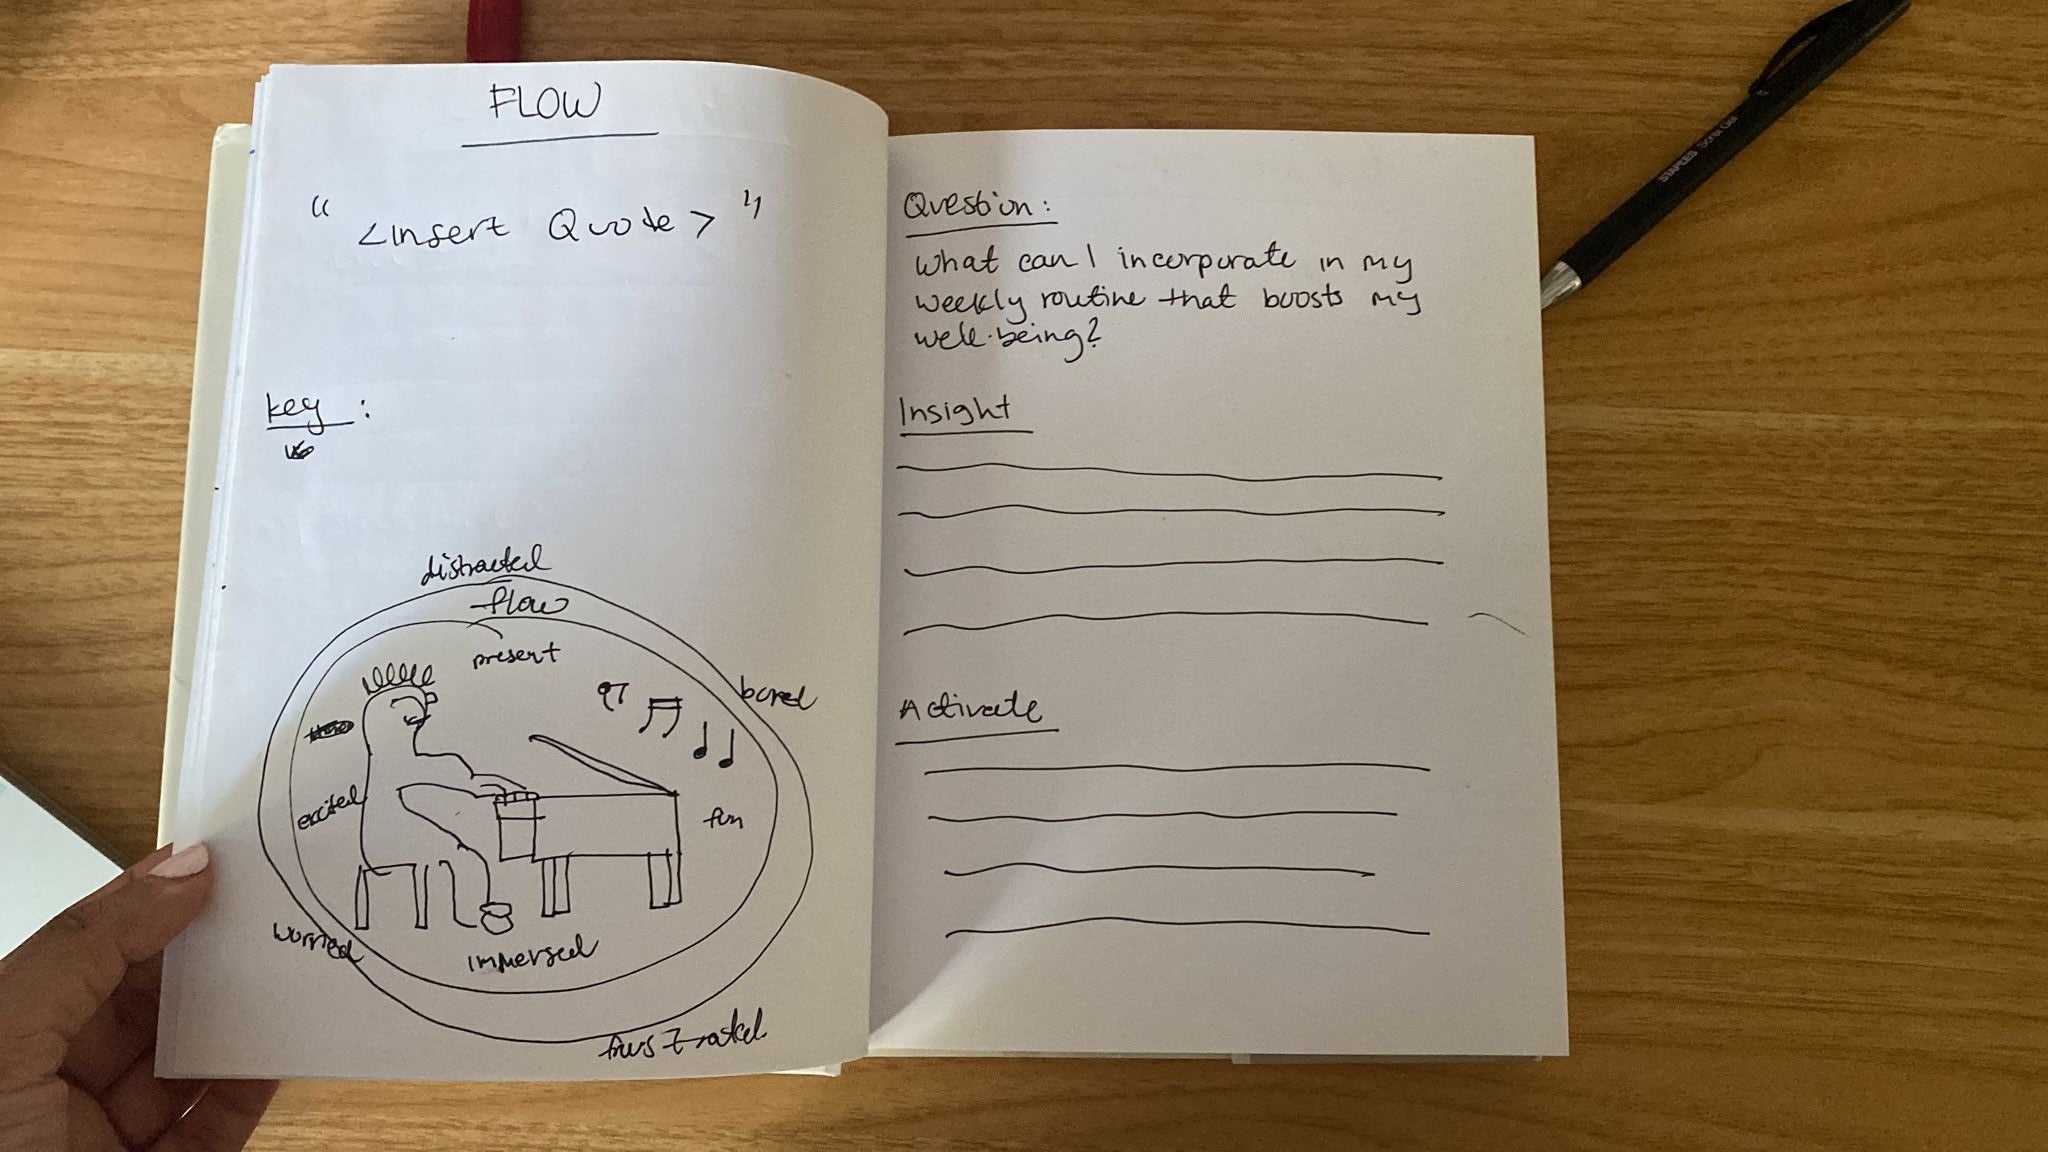 FLOW
" <Insert Quote> "
Key :
distracted
flow
present
bored
excited
fun
worried
immersed
frustrated
Question:
What can I incorporate in my
weekly routine that boosts my
well-being?
Insight
Activate
STAPLES Sonix Gel